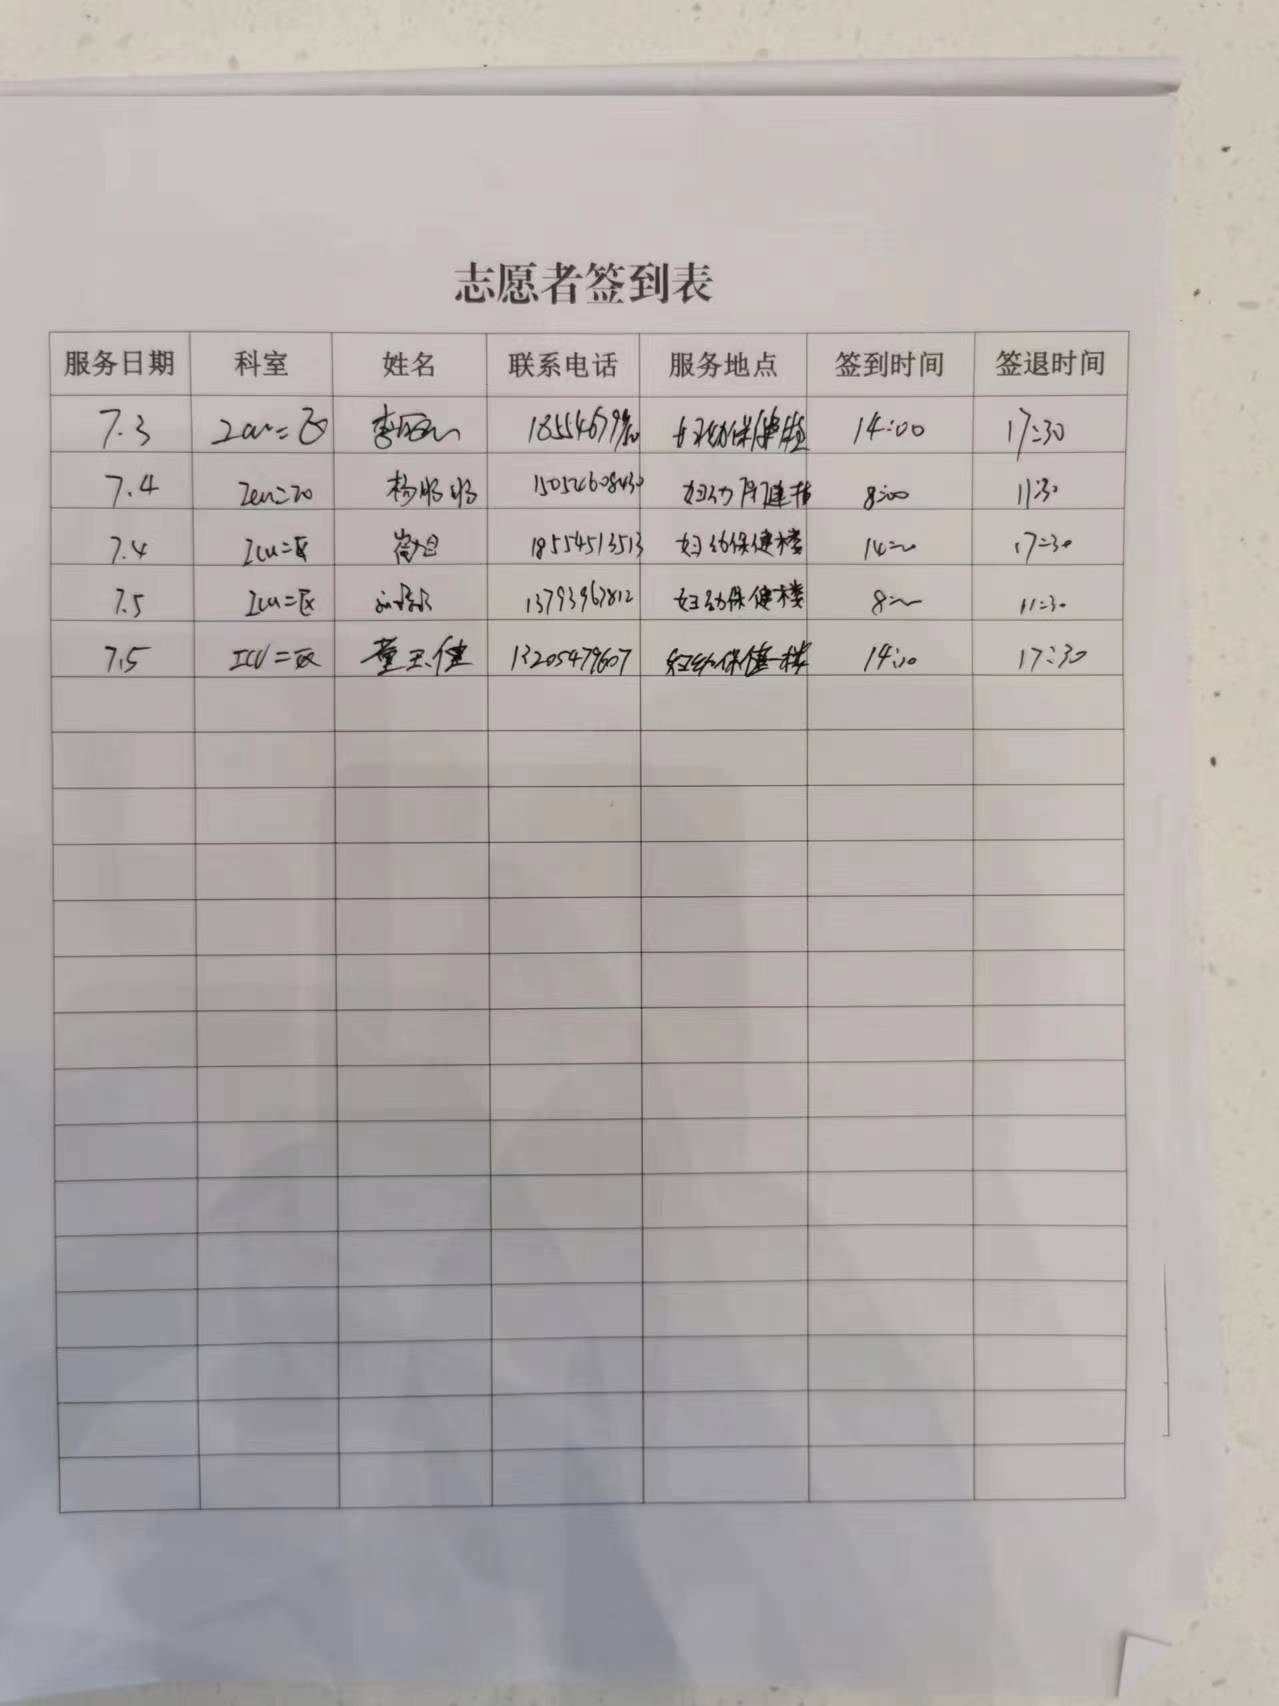 志愿者签到表
服务日期 科室 姓名 联系电话 服务地点 签到时间 签退时间
7.3 ICU二区 妇幼保健楼 14:00 17:30
7.4 杨明明 妇幼保健楼 8:00 11:30
7.4 ICU二区 18554513513 妇幼保健楼 17:30
7.5 ICU二区 13793967812 妇幼保健楼 11:30
7.5 ICU二区 董玉健 13205479607 妇幼保健楼 14:00 17:30